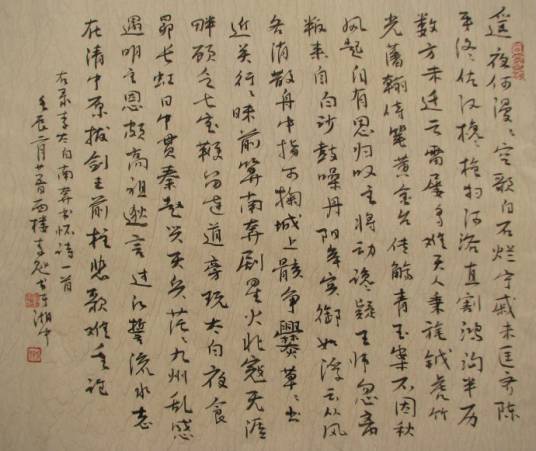 遥夜何漫々空歌白石烂宁戚未匡齐陈
平终佐汉欃枪扫河洛直割鸿沟半历
数方未迁云雷屡多难天人秉旄钺虎竹
光藩翰侍笔黄金台传觞青玉案不因秋
风起自有思归叹主将动谗疑王师忽离
叛来自白沙鼓噪丹阳岸宾御如浮云从风
各消散舟中指可掬城上骸争爨草々出
近关行々昧前算南奔剧星火北寇无涯
畔顾乏七宝鞭留连道旁玩太白夜食
昴长虹日中贯秦赵兴天兵茫々九州乱感
遇明主恩颇高祖逖言过江誓流水志
在清中原拔剑击前柱悲歌难重论
右录李太白南奔书怀诗一首
壬辰二月西楼李书于湖